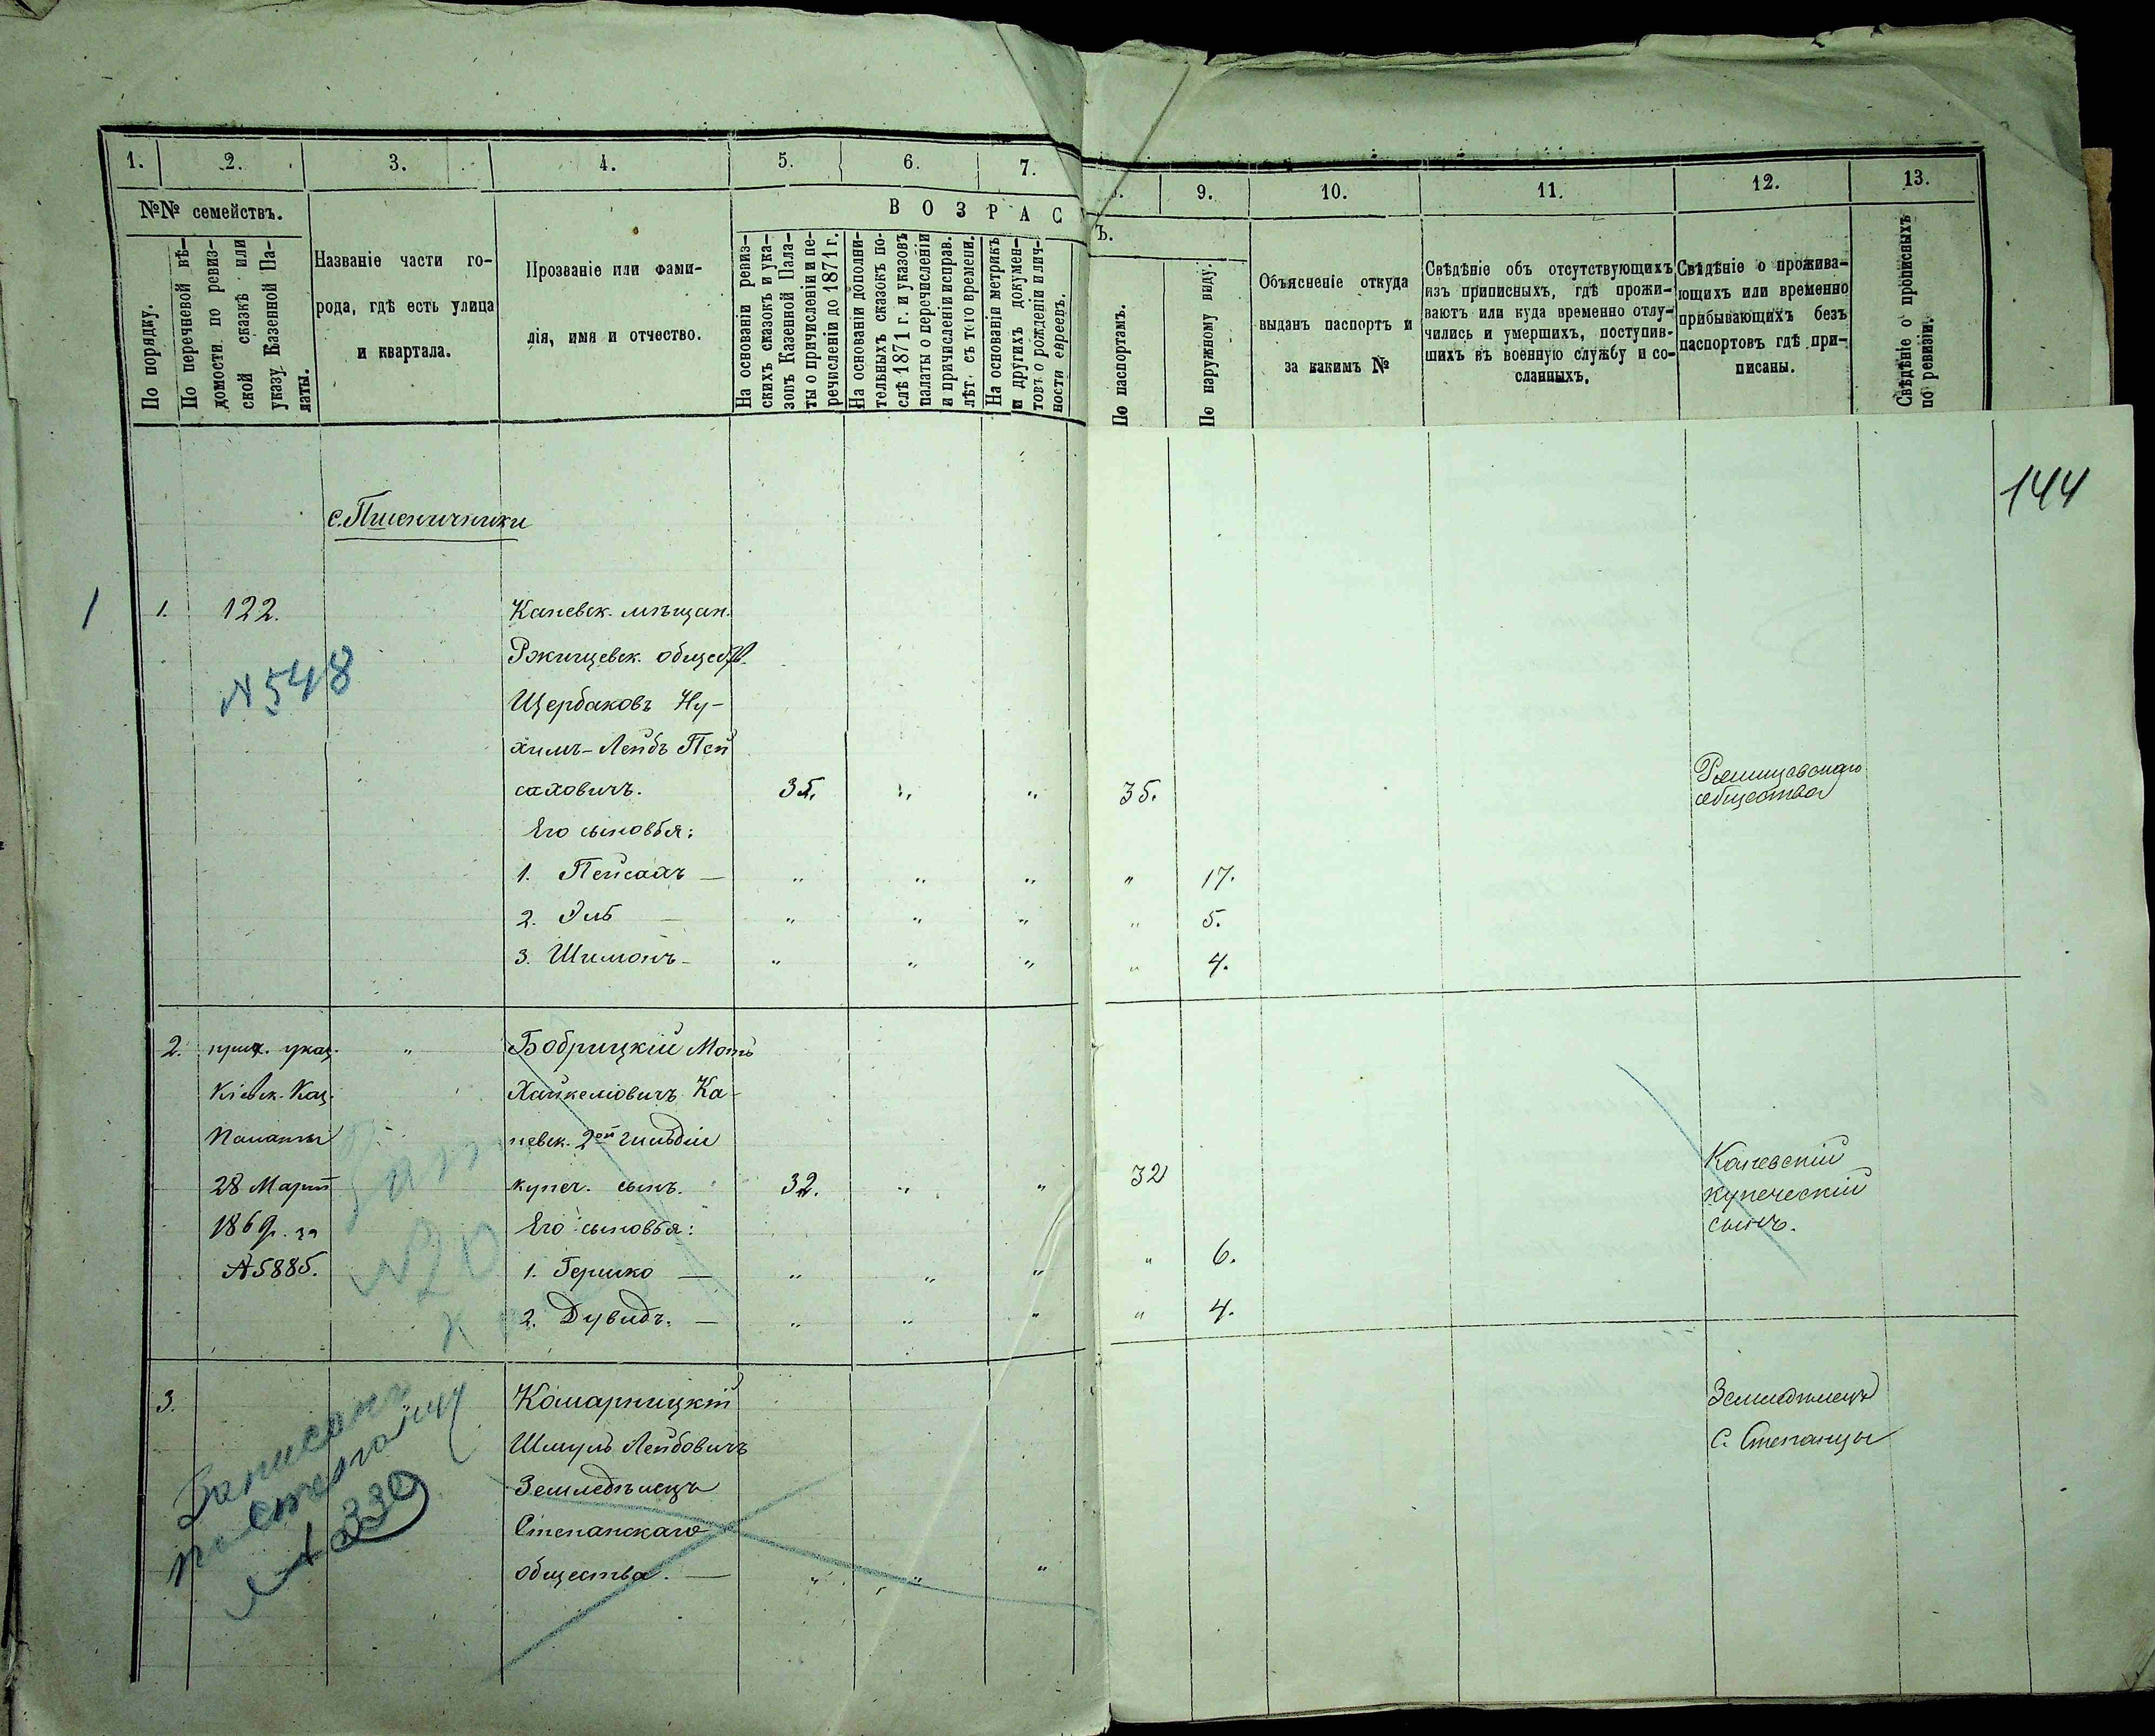 1. 2. 3. 4. 5. 6. 7. 9. 10. 11. 12. 13.
№№ семействъ.
В О З Р А С
Ъ.
По порядку.
По перечневой вѣ-
домости по ревиз-
ской сказкѣ или
указу Казенной Па-
латы.
Названіе части го-
рода, гдѣ есть улица
и квартала.
Прозваніе или фами-
лія, имя и отчество.
На основаніи ревиз-
скихъ сказокъ и ука-
зовъ Казенной Пала-
ты о причисленіи и пе-
речисленіи до 1871 г.
На основаніи дополни-
тельныхъ сказокъ по-
слѣ 1871 г. и указовъ
палаты о перечисленіи
и причисленіи исправ.
лѣт. съ того времени.
На основаніи метрикъ
и другихъ докумен-
товъ о рожденіи и лич-
ности евреевъ.
По паспортамъ.
По наружному виду.
Объясненіе откуда
выданъ паспортъ и
за какимъ №
Свѣдѣніе объ отсутствующихъ
изъ приписныхъ, гдѣ прожи-
ваютъ или куда временно отлу-
чились и умершихъ, поступив-
шихъ въ военную службу и со-
сланныхъ.
Свѣдѣніе о прожива-
ющихъ или временно
прибывающихъ безъ
паспортовъ гдѣ при-
писаны.
Свѣдѣніе о прописныхъ
по ревизіи.
144
с. Пшеничники
1 1. 122. Каневск. мѣщан.
Ржищевск. обществ.
№ 548
Щербаковъ Ну-
химъ-Лейбъ Пей
саховичъ. 35. " " 35.
Ржищевскаго
общества
Его сыновья:
1. Пейсахъ — " " " " 17.
2. Эль — " " " " 5.
3. Шимонъ — " " " " 4.
2. прич. указ. " Бобрицкій Мот
Кіевск. Каз. Хайкелювичъ Ка-
Палаты невск. 2ой гильдіи
28 Март купеч. сынъ. 32. " " 32
Каневскій
купеческій
сынъ.
1869г. за Его сыновья:
№ 5885. 1. Гершко — " " " " 6.
№ 20
2. Дувидъ. — " " " " 4.
3. " Комарницкій
Шмуль Лейбовичъ
Земледѣлецъ
Степанскаго
общества. — " " "
Земледѣлецъ
С. Степанцы
Записанъ
по степанцу
№ 330